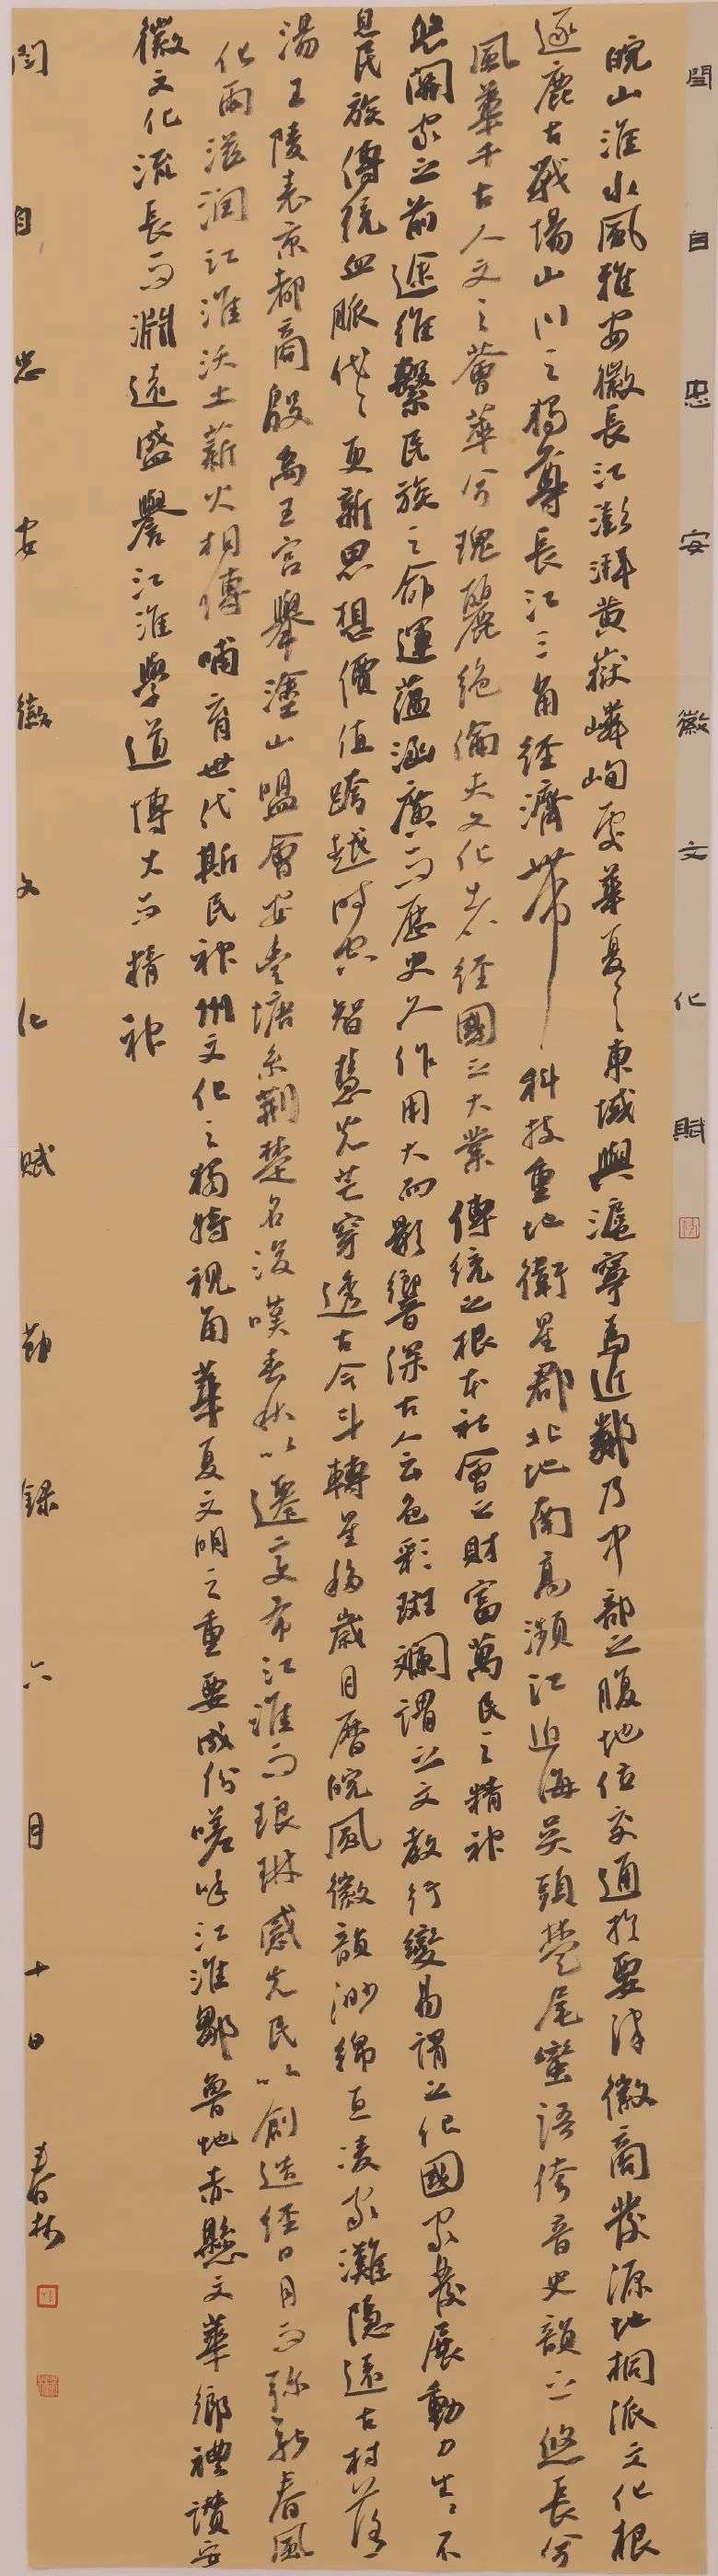 閆自忠安徽文化賦
皖山淮水風雅安徽長江澎湃黄嶽嶙峋處華夏之東域與滬寧為近鄰乃中部之腹地位交通於要津徽商發源地桐派文化根
逐鹿古戰場山川之獨尊長江三角經濟帶科技重地衛星郡北地南高瀕江近海吳頭楚尾蠻語侉音史韻之悠長兮
風華千古人文之薈萃兮瑰麗絶倫夫文化者經國之大業傳統之根本社會之財富萬民之精神
開家之前途維繫民族之命運蕴涵廣而歷史久作用大而影響深古人云色彩斑斕謂之文教行變易謂之化國家發展動力生生不
息民族傳統血脈代代更新思想價值跨越時空智慧光芒穿透古今斗轉星移歲月曆皖風徽韻渺綿亘凌家灘隐遠古村落
湯王陵表京都商殷禹王宫舉塗山盟會安豊塘系荆楚名浚嘆春秋以遷变布江淮而琅琳感先民以創造經日月而弥新春風
化雨滋润江淮沃土薪火相傳哺育世代斯民神州文化之獨特視角華夏文明之重要成份嗟呼江淮鄒魯地赤縣文華鄉禮讚安
徽文化流長而淵遠盛譽江淮學道博大而精神
閆自忠安徽文化賦勘録六月十日春林